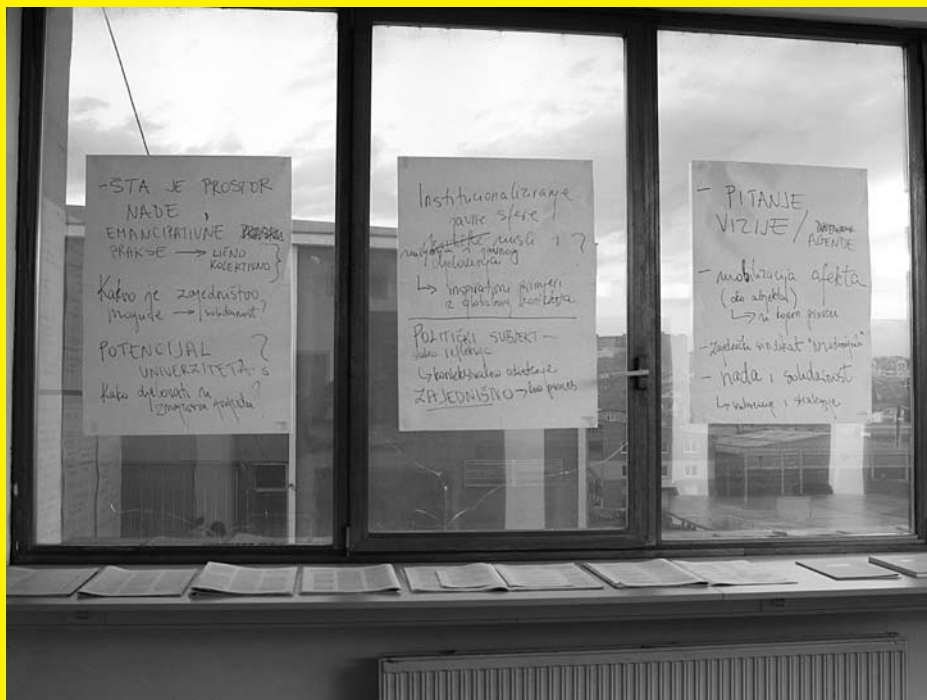 - ŠTA JE PROSTOR
NADE,
EMANCIPATIVNE
PRAKSE → LIČNO
KOLEKTIVNO }
Kakvo je zajedništvo
moguće → solidarnost?
POTENCIJAL ?
UNIVERZITETA
Kako djelovati
?
Institucionaliziranje
javne sfere
kritike misli i ?
mišljenja i javnog
djelovanja
↳ inspirativni primjeri
iz globalnog konteksta
POLITIČKI SUBJEKT -
↳ kontekstualno određenje
ZAJEDNIŠTVO → kao proces
- PITANJE
VIZIJE / AGENDE
- mobilizacija afekta
(oko objekta)
↳ u kojem pravcu
- zajednički sindikat
- nada i solidarnost
↳ i strategije